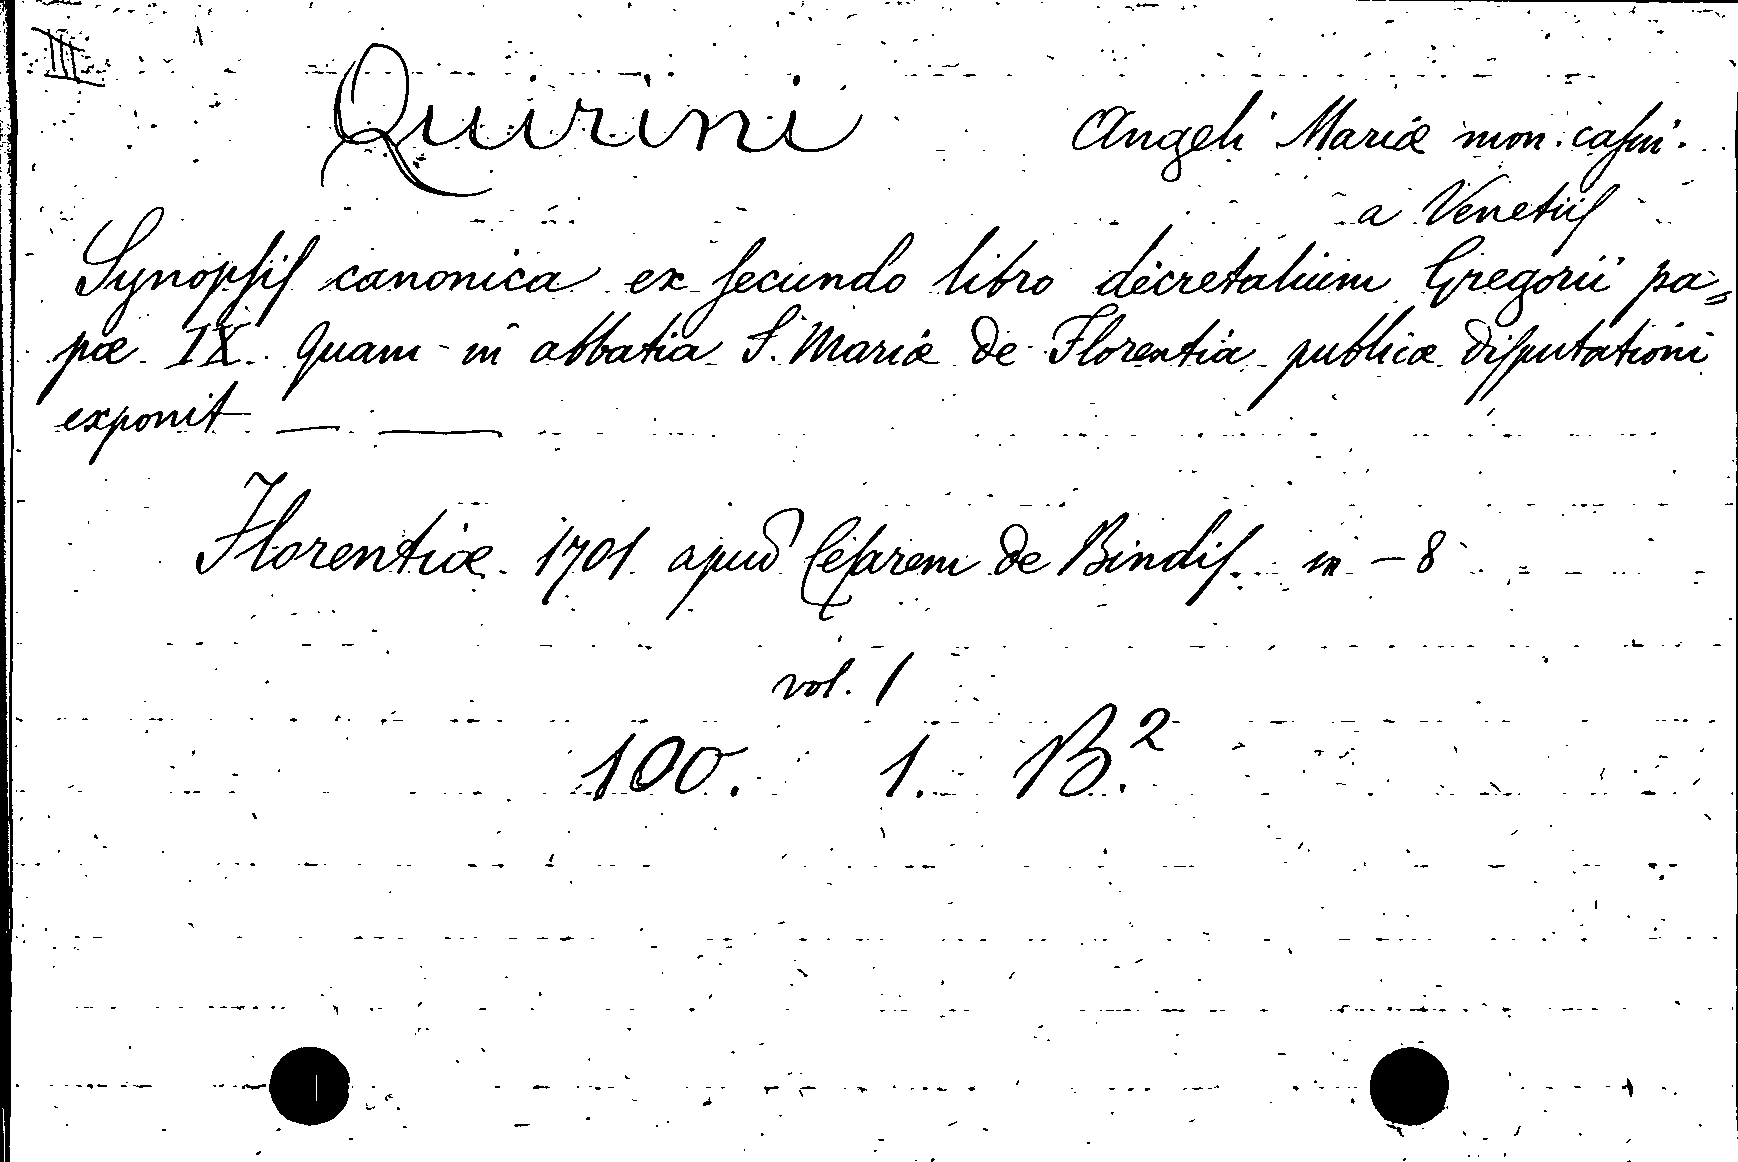 III
Quirini Angeli Mariæ mon. casin.
a Venetiis
Synopsis canonica ex secundo libro decretalium Gregorii pa=
pæ IX. Quam in abbatia S. Mariæ de Florentia publicæ disputationi
exponit — —
Florentiæ 1701 apud Cęsarem de Bindis. in - 8
vol. 1
100. 1. B.²